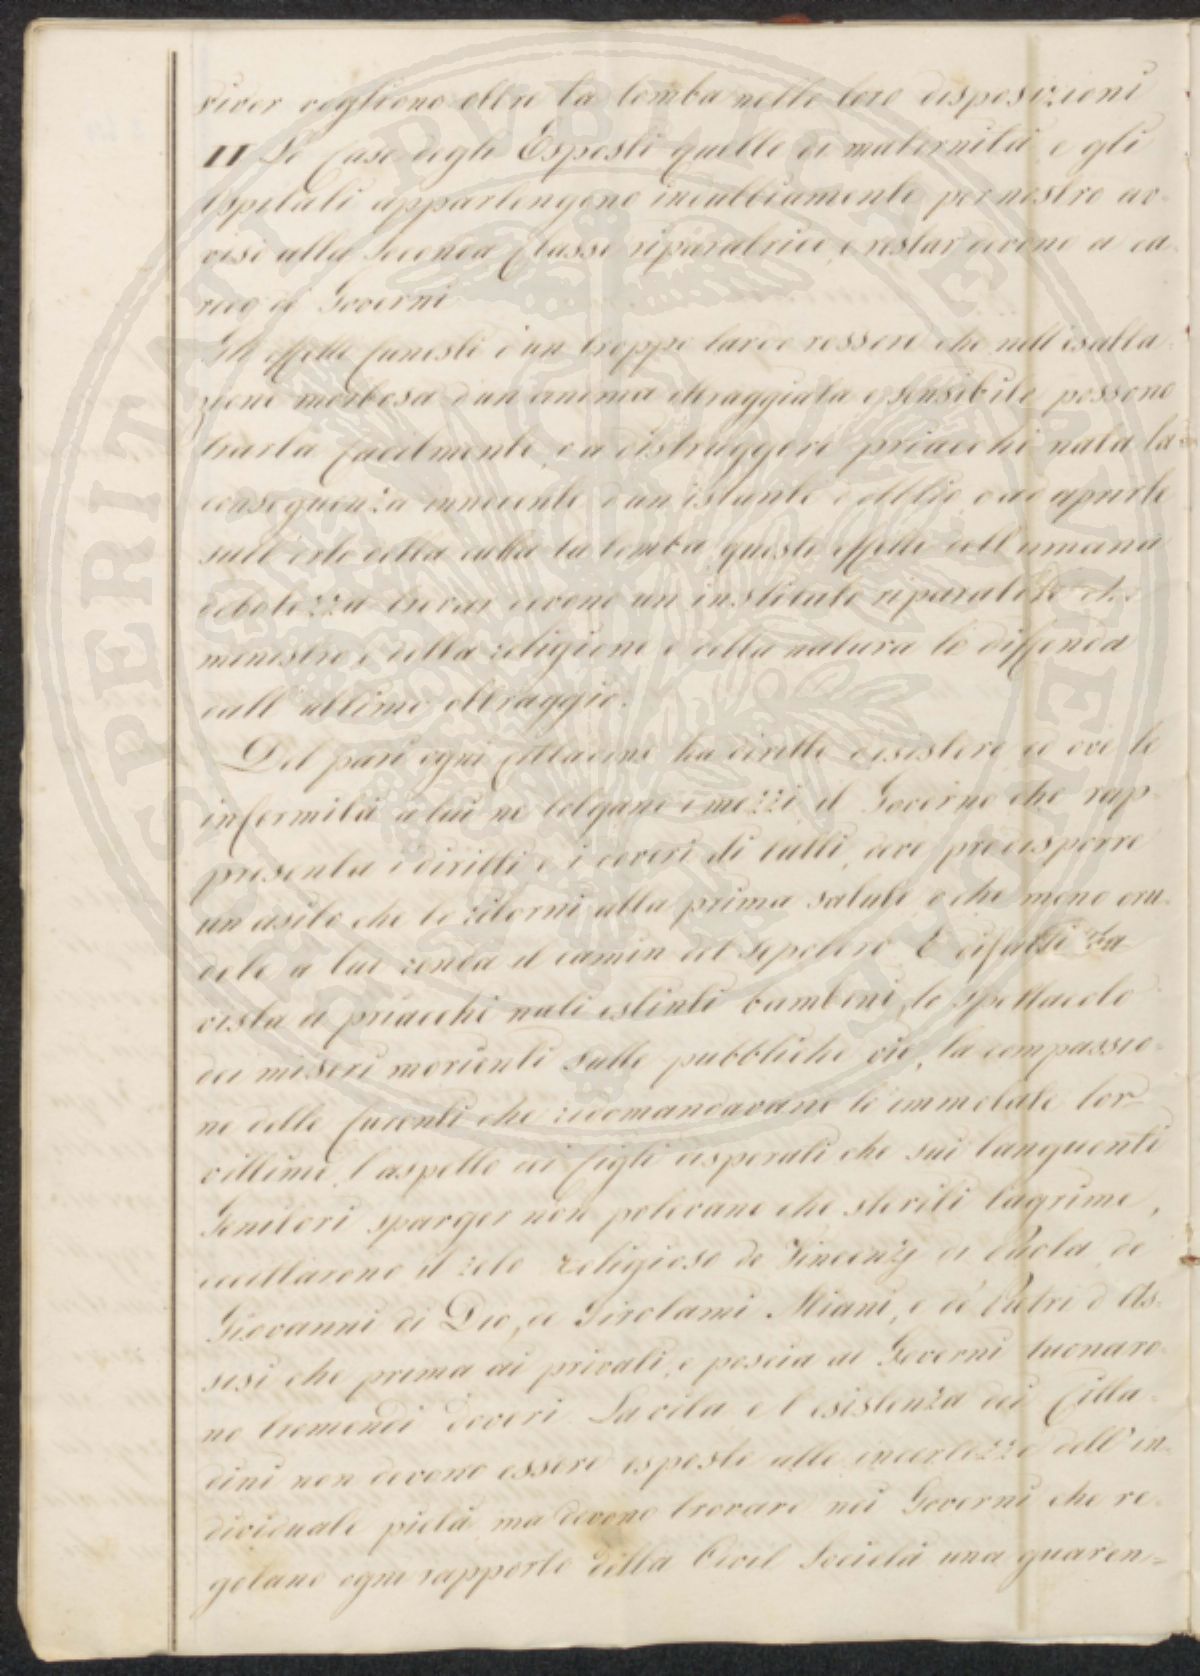 viver vogliono oltre la tomba nelle loro disposizioni
II Le Case degli Esposti quelle di maternità, e gli
Ospitali appartengono indubbiamente per nostro av-
viso alla seconda Classe riparatrice, e restar devono a ca-
rico dei Governi
Gli effetti funesti d'un troppo tardo rossore che nell'esalta-
zione morbosa d'un anima oltraggiata e sensibile possono
trarla facilmente, o a distruggere priacchè nata la
conseguenza innocente d'un istante d'obblio, o ad aprirle
sull'orlo della culla la tomba, questi effetti dell'umana
debolezza trovar devono un instituto riparatore che
ministro e della religione e della natura lo diffenda
dall'ultimo oltraggio.
Del pari ogni Cittadino ha diritto d'esistere, ed ove le
infermità a lui ne tolgano i mezzi, il Governo che rap-
presenta i diritti e i doveri di tutti, deve predisporre
un asilo che lo ritorni alla prima salute, o che meno cru-
dele a lui renda il camin del sepolcro. E difatti la
vista di priacchè nati estinti bambini, lo spettacolo
dei miseri morienti sulle pubbliche vie, la compassio-
ne delle che ridomandavano le immolate lor
vittime, l'aspetto dei figli disperati che sui languenti
Genitori sparger non potevano che sterili lagrime,
eccittarono il zelo religioso de Vincenzj di Paola, de
Giovanni di Dio, de Girolami Miani, e de' Pietri d'As-
sisi che prima ai privati, e poscia ai Governi tuonaro-
no tremendi doveri. La vita e l'esistenza dei Citta-
dini non devono essere esposte alle incertezze dell'in-
dividuale pietà, ma devono trovare nei Governi che re-
golano ogni rapporto della Civil Società una guaren-
PERITATI PUBLICAE